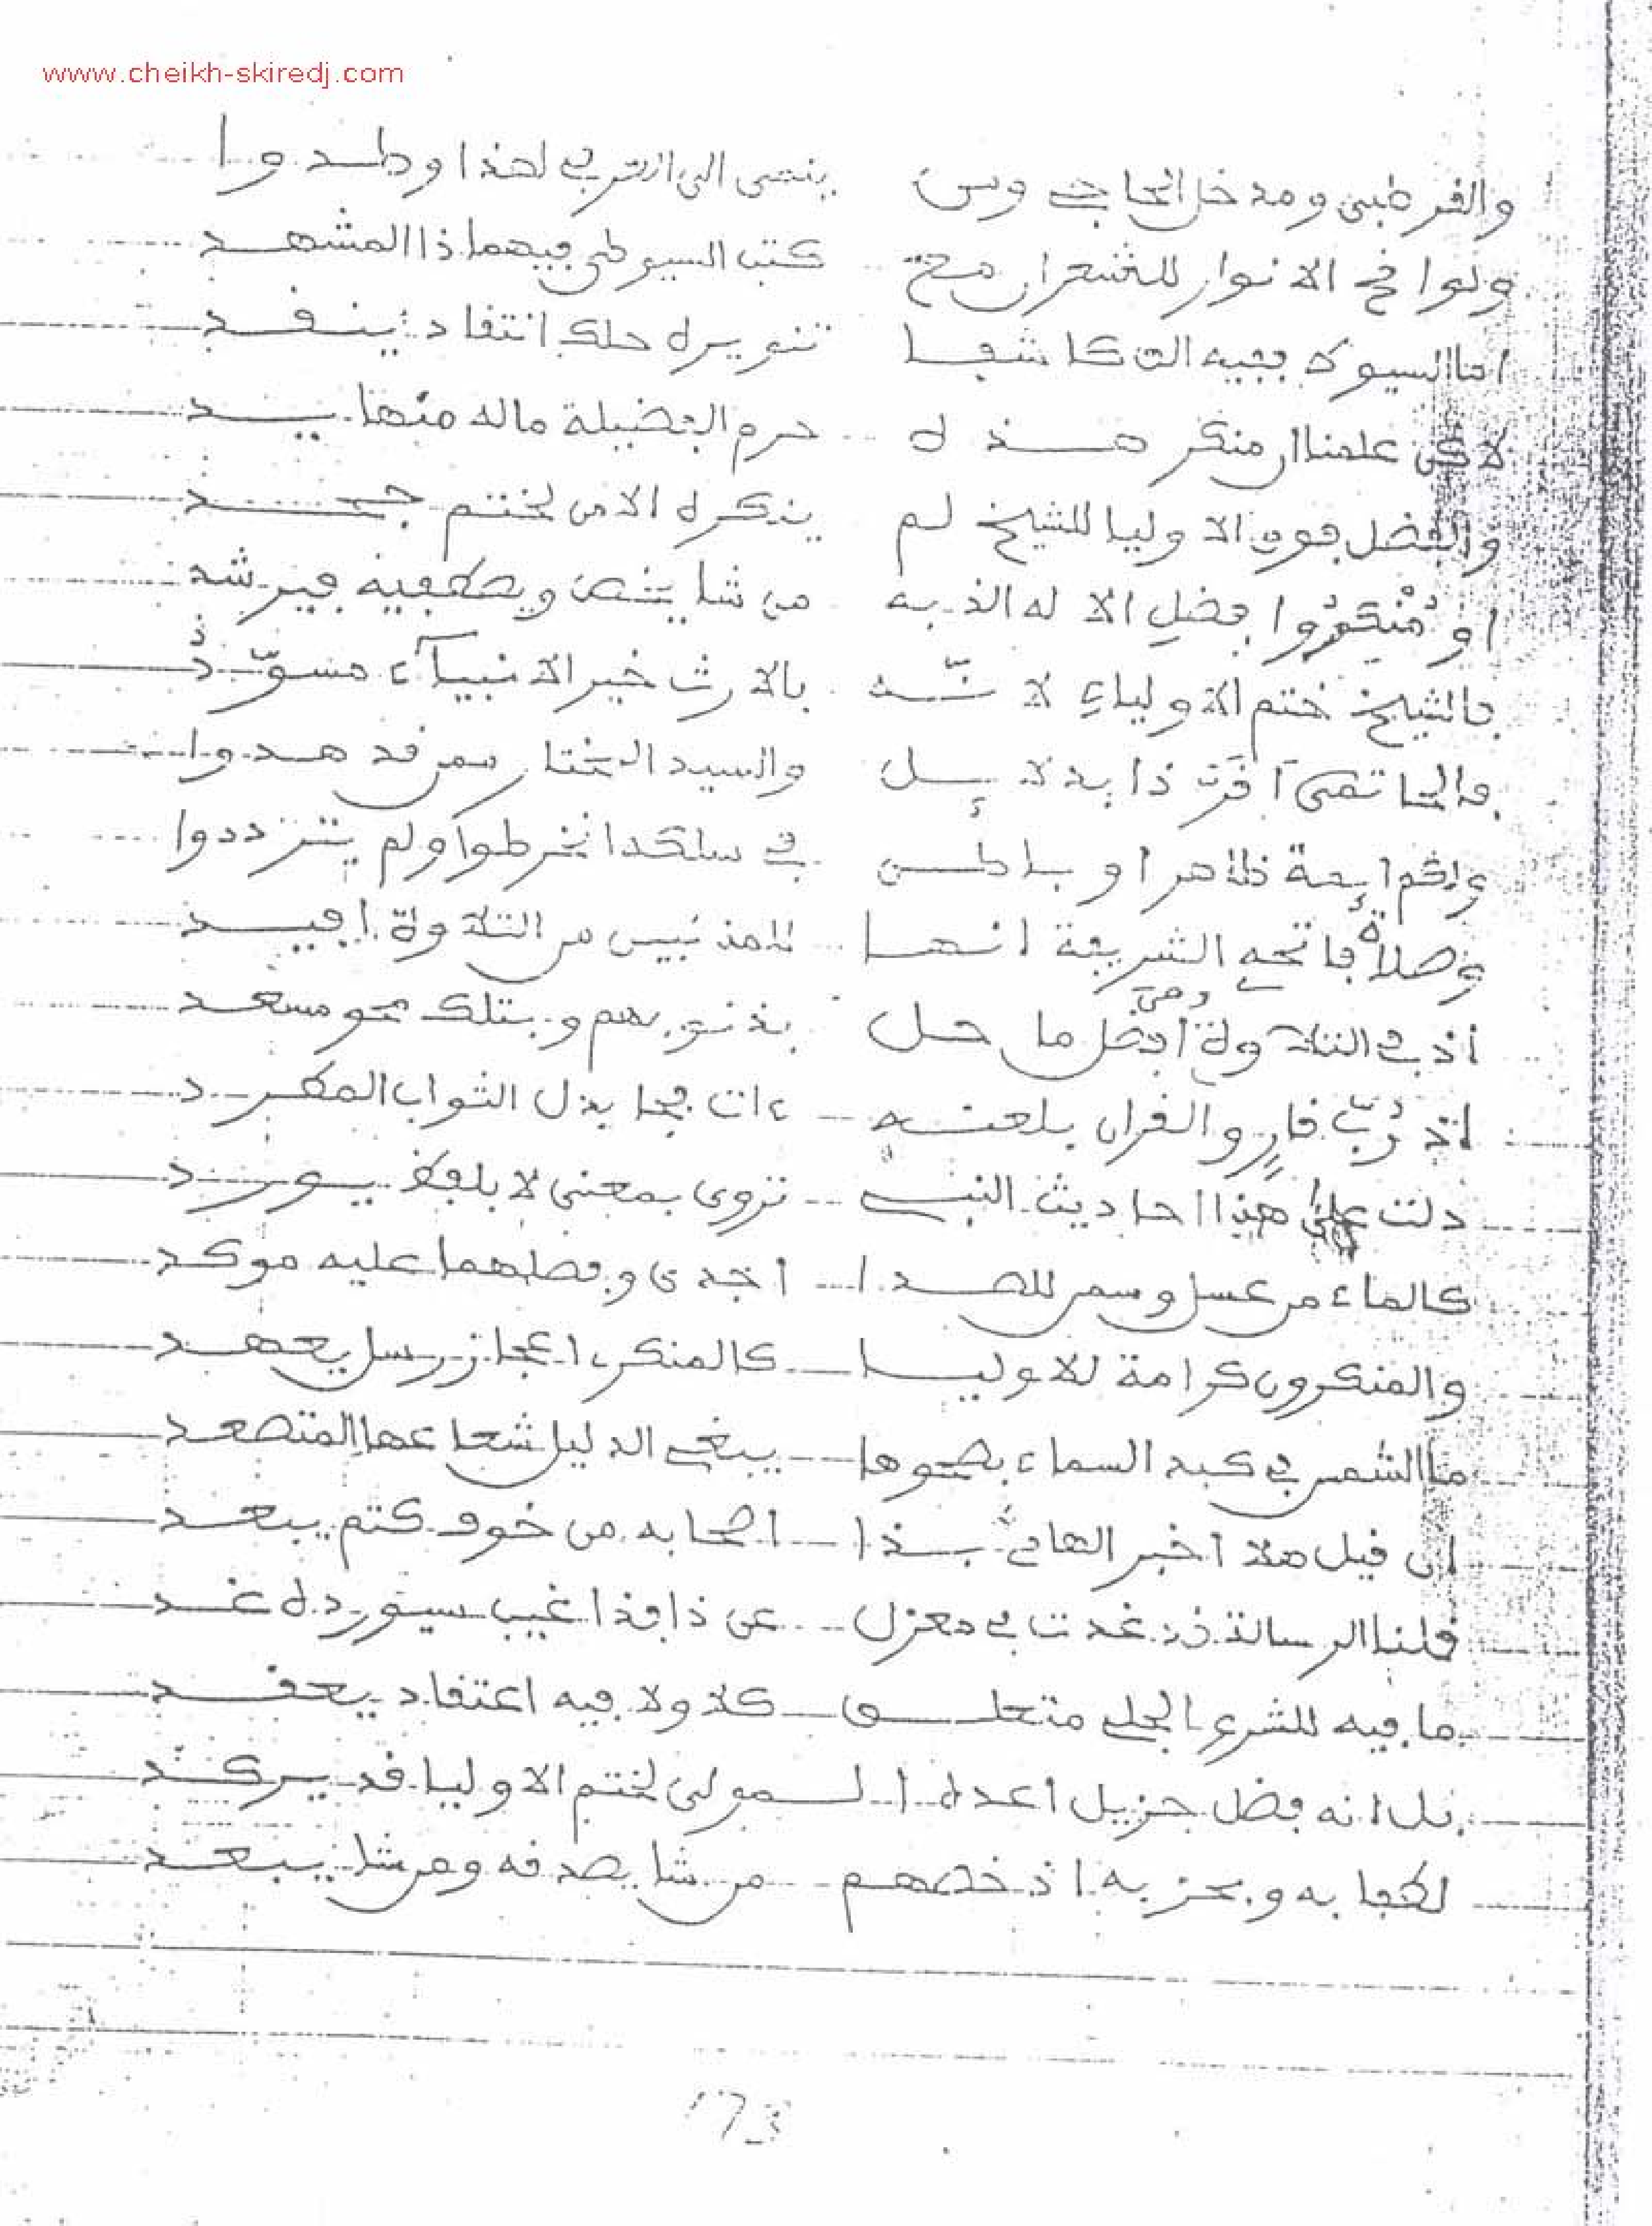 www.cheikh-skiredj.com
والقرطبى ومدخل الحاج ومن ينمى الى القربى لهذا وطدوا
ولوافح الانوار للشعران مع كتب السيوطى فيهما ذا المشهد
اما السيو بفيه الق كاشفا تنويره حلك انتقاد ينفد
علمنا ان منكر هذه حرم الفضيلة ماله منها يد
والفضل فوق الاوليا للشيخ لم ينكره الا من لختم يجحد
او منكروا فضل الاله الذ به من شا يخص ويصطفيه فيرشد
فالشيخ ختم الاولياء لانه بالارث خير الانبياء مسود
فالحاتمى اقر ذا بدلايل والسيد المختار ممن قد هدوا
وايمة ظاهر او باطن في سلكه انخرطوا ولم يترددوا
وصلاة فاتحه الشريعة انها للمذنبين من التلاوة افيد
اذ في التلاوة وهي افضل ما حل بذنوبهم وبتلك محو مسعد
اذ رب قار والقران بلعنه ءات فجا بدل الثواب المكرد
دلت على هذا احاديث النبي تروى بمعنى لا بلفظ يورد
كالماء من عسل وسمن للصدا اجدى وفضلهما عليه موكد
والمنكرون كرامة للاوليا كالمنكر اعجاز رسل يعهد
ما الشمس في كبد السماء بصحوها يبغى الدليل شعاعها المتصعد
ان قيل هلا اخبر الهادي بذا اصحابه من خوف كتم يبعد
قلنا الرسالة قد غدت في معزل عن ذا فذا غيب سيورده غد
ما فيه للشرع الجلي متعلق كلا ولا فيه اعتقاد يعقد
بل انه فضل جزيل اعده المولى لختم الاوليا قد يركد
لطفا به وبحزبه اذ خصهم من شا يصدقه ومن شا يبعد
173